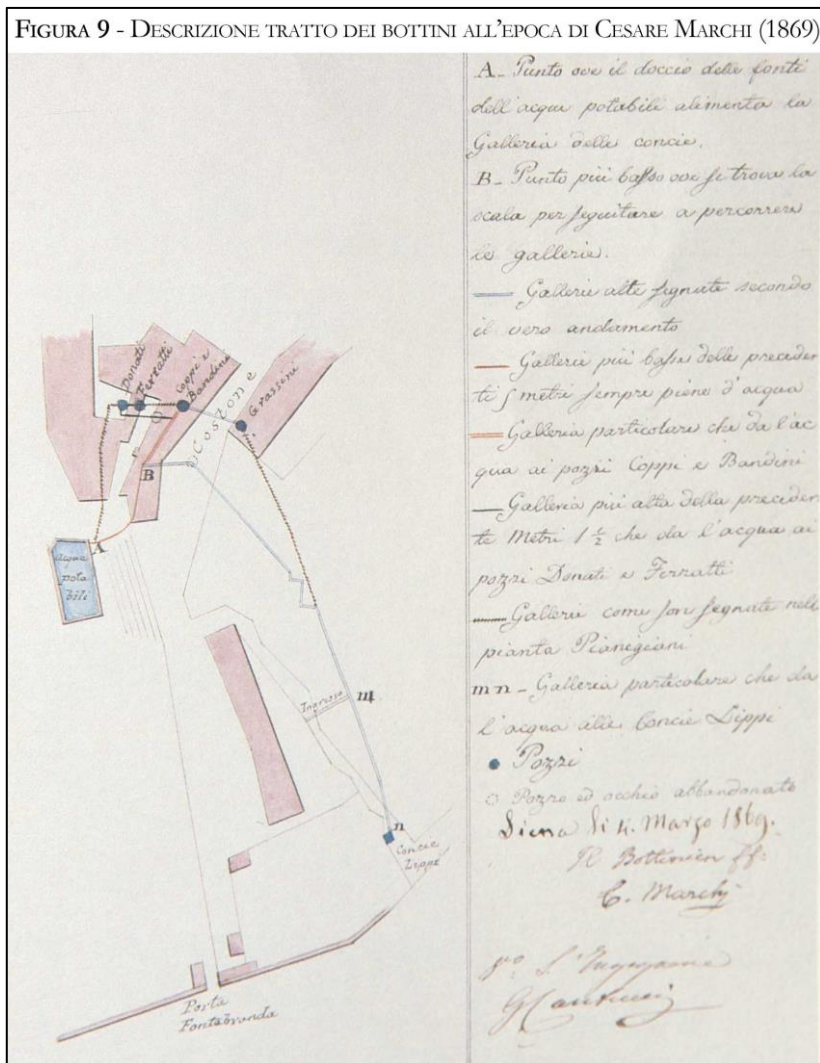 FIGURA 9 - DESCRIZIONE TRATTO DEI BOTTINI ALL'EPOCA DI CESARE MARCHI (1869)
Donati
Ferratti
Coppi e
Bandini
Costone
Grassini
B
A
acque
pota
bili
Ingresso
m
n
Concie
Lippi
Porta
Fontebranda
A - Punto ove il doccio delle fonti
dell'acque potabili alimenta la
Galleria delle concie.
B - Punto più basso ove si trova la
scala per seguitare a percorrere
le gallerie.
Gallerie alte segnate secondo
il vero andamento
Gallerie più basse delle preceden
ti 5 metri sempre piene d'acqua
Galleria particolare che da l'ac
qua ai pozzi Coppi e Bandini
Galleria più alta della preceden
te Metri 1 ½ che da l'acqua ai
pozzi Donati e Ferratti
Gallerie come son segnate nella
pianta Pianigiani
m n - Galleria particolare che da
l'acqua alle Concie Lippi
Pozzi
Pozzo ed occhio abbandonato
Siena li 4. Marzo 1869.
Il Bottiniere ff.
C. Marchi
L'Ingegnere